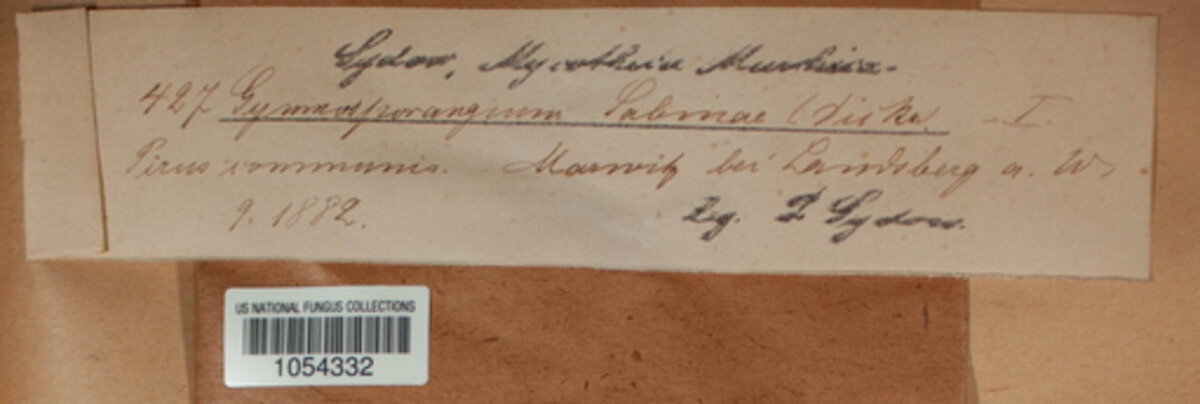 Sydow, Mycotheca Marchica.
427 Gymnosporangium Sabinae (Dicks. - I.
Pirus communis. Marwitz bei Landsberg a. W.
9. 1882.
Leg. P. Sydow.
US NATIONAL FUNGUS COLLECTIONS
1054332